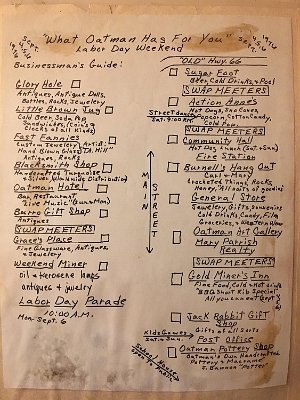 Sept. 4 5 6 1976
"What Oatman Has For You"
Labor Day Weekend
Sept. 4 5 6 1976
Businessman's Guide:
Glory Hole
Antiques, Antique Dolls,
Bottles, Rocks, Jewelry
Little Brown Jug
Cold Beer, Soda Pop
Sandwiches, (Coin &
Clocks of all Kinds)
Fast Fannies
Custom Jewelry (Artist:
Hand Blown Glass)
Antiques, Rocks
Blacksmith Shop
Handcrafted Turquoise
+ Silver (Wholesale Distributor)
Oatman Hotel
Bar, Restaurant,
Live Music (Sun + Mon)
Burro Gift Shop
Antiques
SWAP MEETERS
Grace's Place
Fine Glassware, Antiques,
+ Jewelry
Weekend Miner
oil & kerosene lamps
antiques & jewelry
Labor Day Parade
10:00 A.M.
Mon. Sept. 6
MAIN
STREET
Street dance
Sat. 9:00
Kids Games
Sat. + Sun.
School House
"OLD" Hwy. 66
Sugar Foot
Beer, Cold Drinks, + Pool
SWAP MEETERS
Action Annie's
Hot Dogs, Sno Cones,
Popcorn, Cotton Candy,
Cold
SWAP MEETERS
Community Hall
Hot Dog Lunch (Sat + Sun)
Fire Station
Burnell's Hang Out
Curt + Mary
Honey, All sorts of goodies
General Store
Jewelry, Gifts, Souvenirs
Cold Drinks, Candy, Film
Groceries,
Oatman Art Gallery
Mary Parrish
Realty
SWAP MEETERS
Gold Miner's Inn
Fine Food, Cold + Hot drinks
"BBQ Short Rib Special"
All you can eat (Sept
Jack Rabbit Gift
Shop
Gifts of all Sorts
Post Office
Oatman Pottery Shop
Oatman's Own Handcrafted
Pottery + Macrame
J. Bauman "Potter"